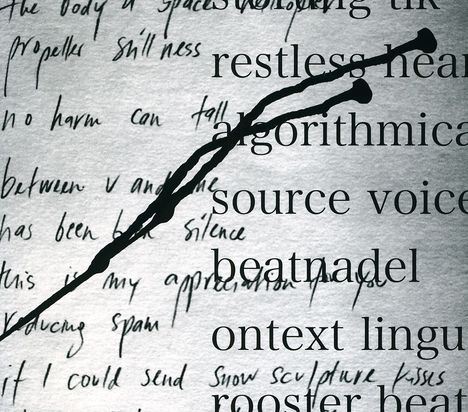 the body a space
propeller stillness
no harm can fall
between v and me
has been silence
this is my appreciation for you
reducing spam
if I could send snow sculpture kisses
tik
restless hear
algorithmica
source voice
beatnadel
ontext lingu
rooster beat